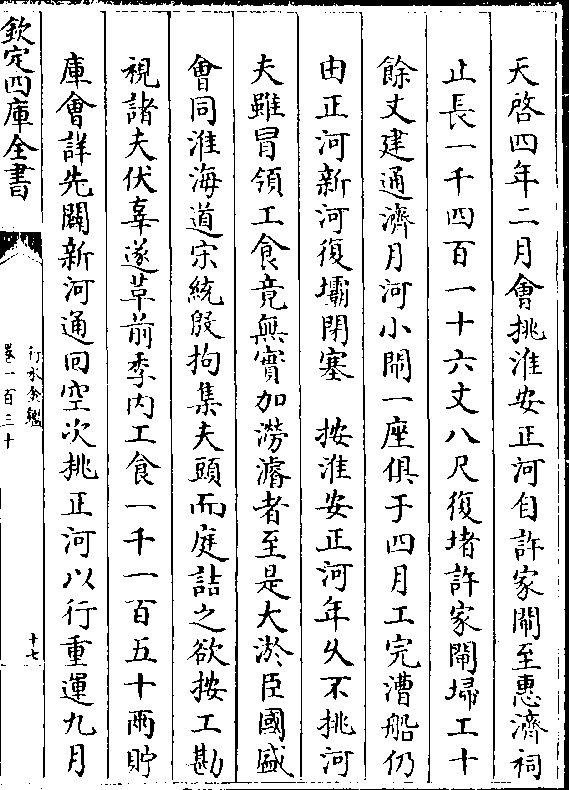 天啓四年二月會挑淮安正河自許家閘至惠濟祠
止長一千四百一十六丈八尺復堵許家閘埽工十
餘丈建通濟月河小閘一座俱于四月工完漕船仍
由正河新河復壩閉塞　按淮安正河年久不挑河
夫雖冒領工食竟無實加澇濬者至是大淤臣國盛
會同淮海道宋統殷拘集夫頭而庭詰之欲按工勘
視諸夫伏辜遂革前季内工食一千一百五十兩貯
庫會詳先闢新河通回空次挑正河以行重運九月
欽定四庫全書
行水金鑑
卷一百三十
十七